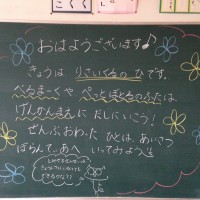 こくご
おはようございます♪
きょうは りさいくるの ひです。
べるまーくや ぺっとぼとるのふたは、
げんかんまえに だしにいこう!
ぜんぶおわった ひとは、あいさつ
ぼらんて..あへ いってみよう!!